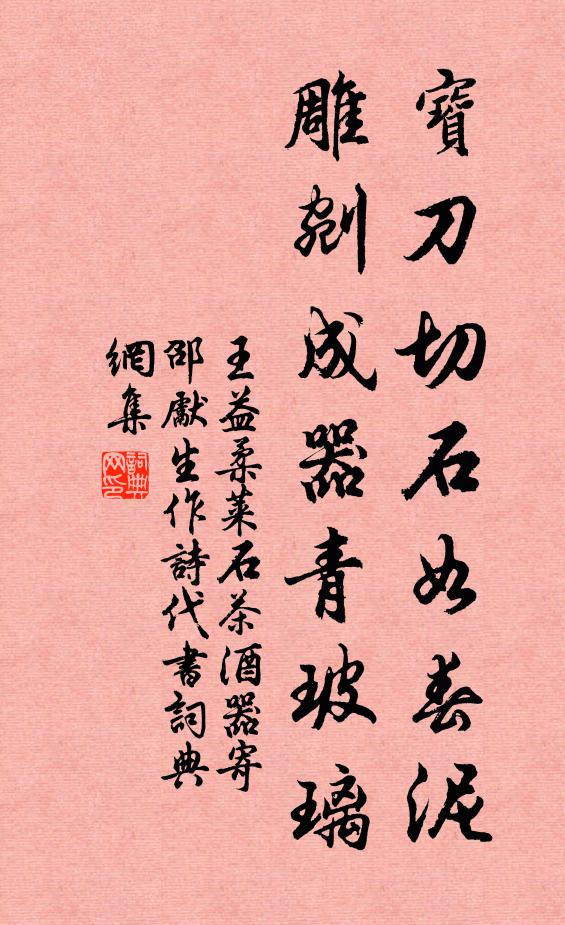 寶刀切石如春泥
雕剜成器青玻璃
王益柔萊石茶酒器寄
邵獻生作詩代書詞典
網集
詞典
网印